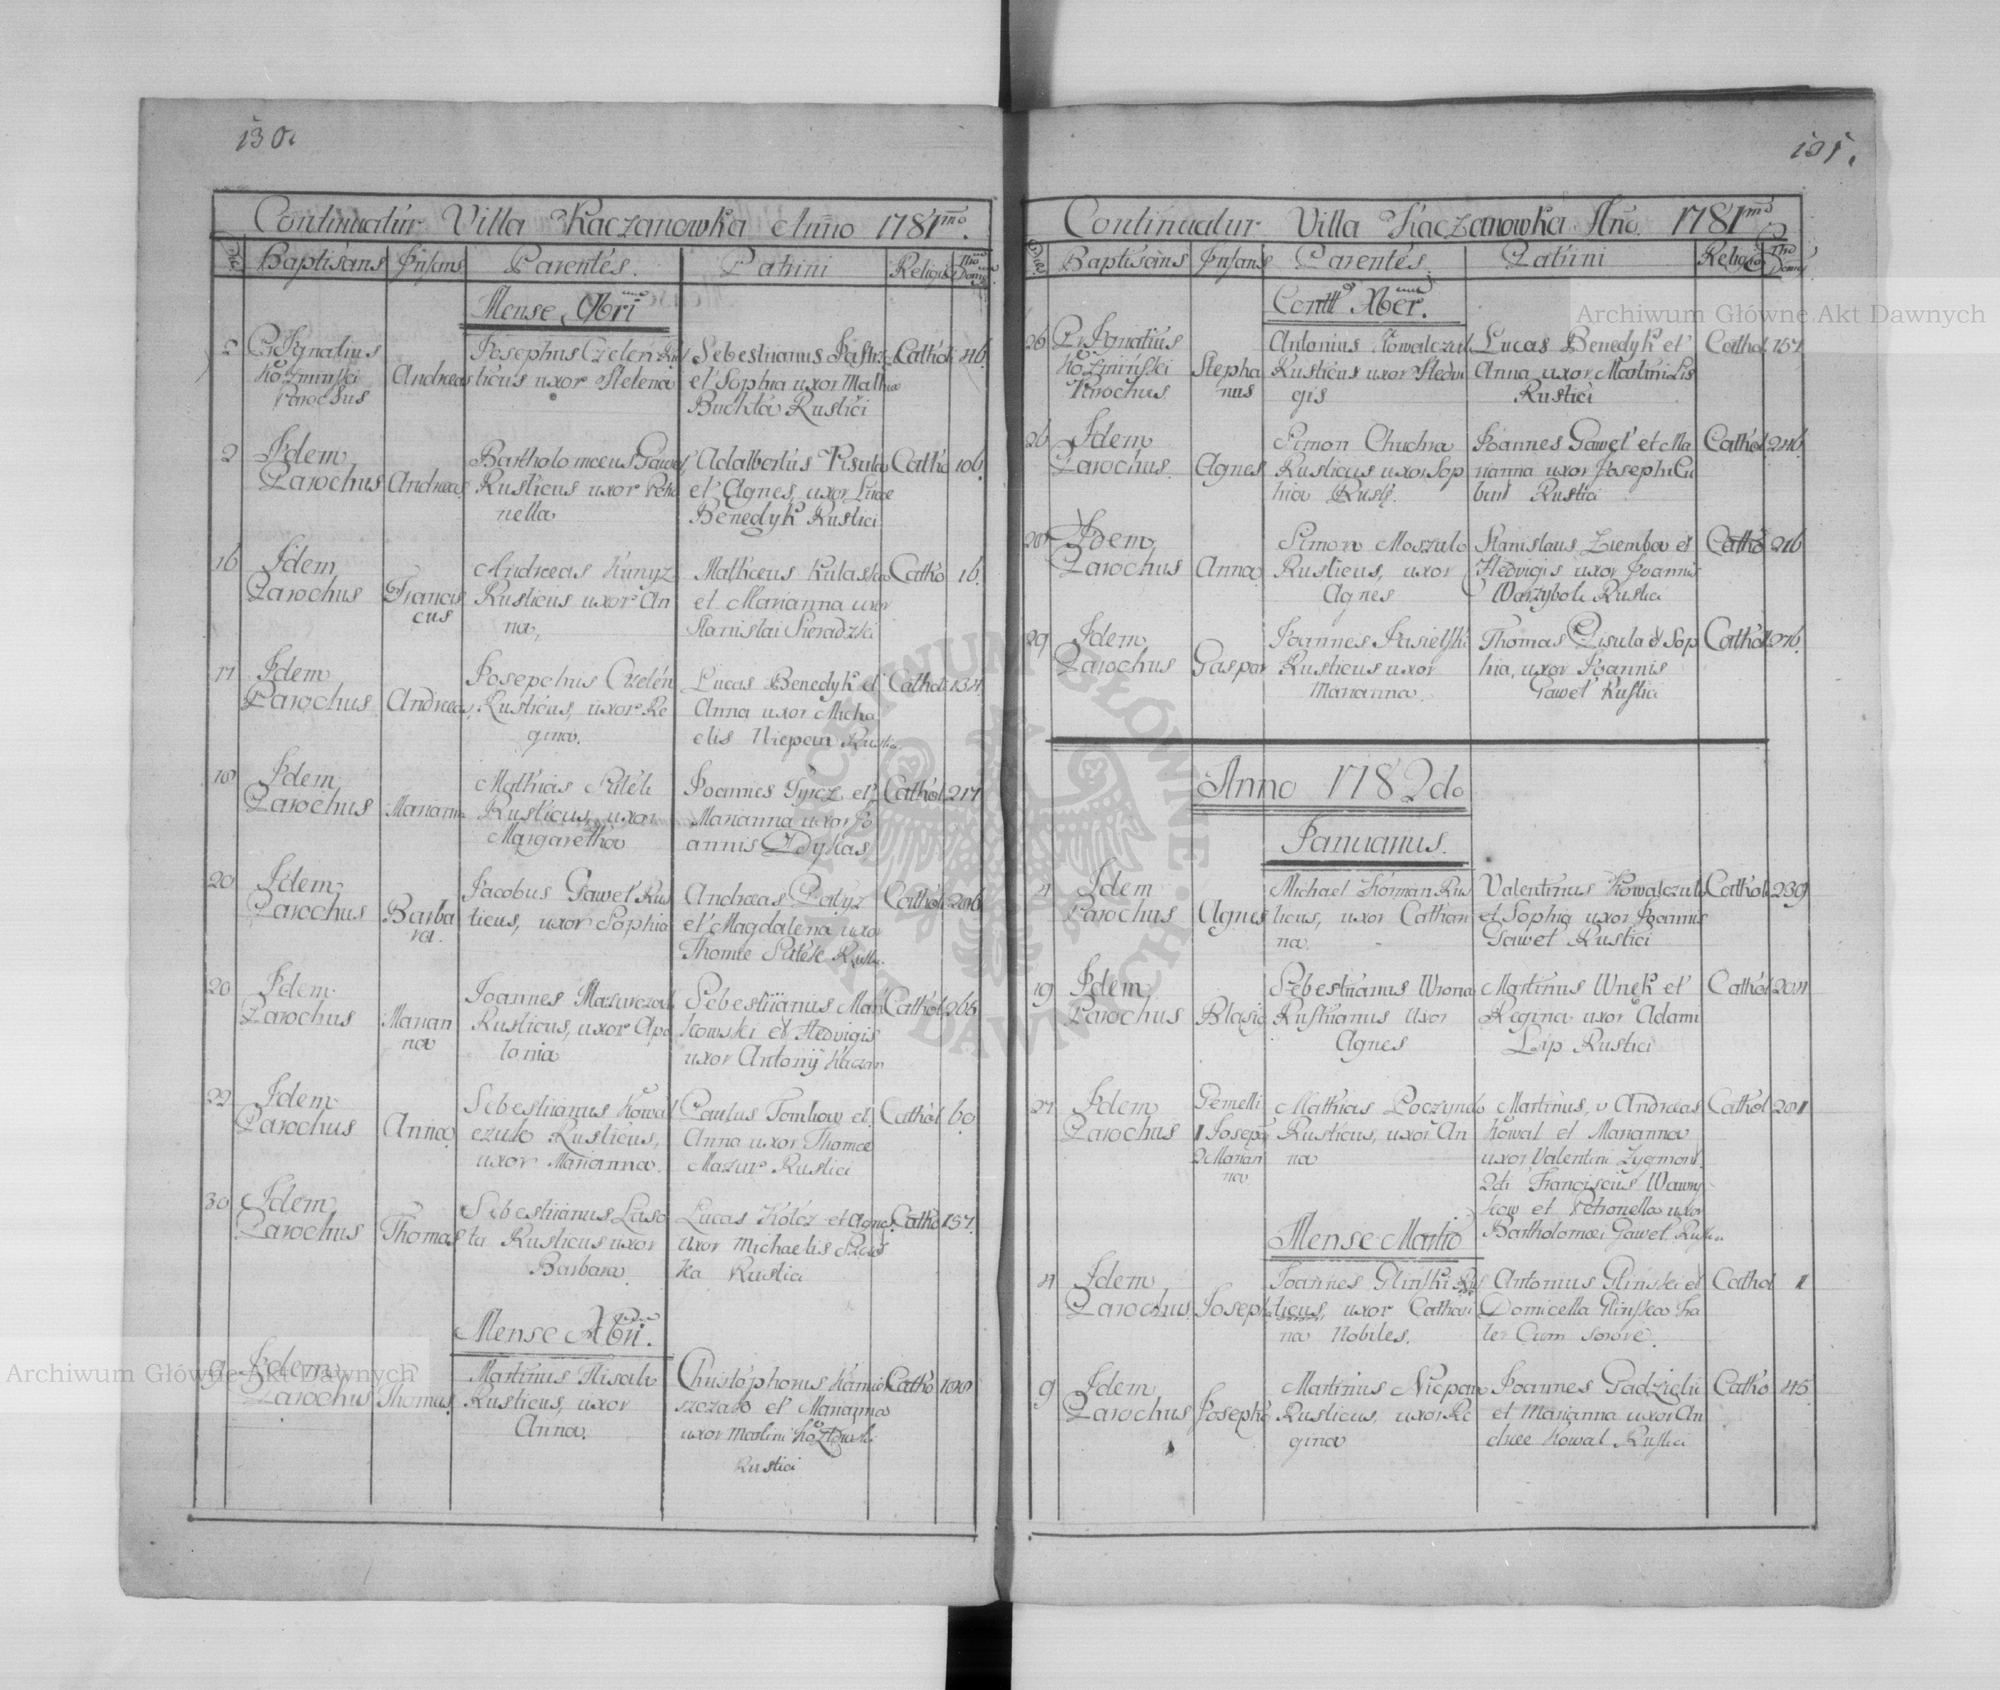 130.
Continuatur Villa Kaczanowka Anno 1781mo.
Dies Baptisans Infans Parentes. Patrini Religio Nro Domus
Mense 9bri
2 P. Ignatius Koźmiński Parochus
Andreas
Josephus Czeleń Rusticus uxor Helena
Sebestiianus
et Sophia uxor Mathiae
Buchta Rustici
Cathol 46.
2 Idem
Parochus Andreas
Bartholomaeus Gaweł
Rusticus uxor Petro
nella
Adalbertus Pisula
et Agnes, uxor Lucae
Benedyk Rustici
Catho 106.
16 Idem
Parochus Francis
cus
Andreas
Rusticus uxor An
na,
Mathaeus Kulaska
et Marianna uxor
Stanislai Sieradzki
Catho 16.
17 Idem
Parochus Andreas
Josephus Czeleń
Rusticus, uxor Re
gina.
Lucas Benedyk et
Anna uxor Micha
elis Niepein Rustici
Cathol 134.
18 Idem
Parochus Marianna
Mathias
Rusticus uxor
Margaretha
Joannes et
Marianna uxor Jo
annis Dydkas
Cathol 217
20 Idem
Parochus Barba
ra.
Jacobus Gaweł Rus
ticus, uxor Sophia
Andreas
et Magdalena uxor
Thomae Rustici
Cathol 206
20 Idem
Parochus Marian
na
Joannes Mazurczak
Rusticus, uxor Apo
lonia
Sebestiianus Mań
kowski et Hedvigis
uxor Antonij Kaczan
Cathol 265
22 Idem
Parochus Anna
Sebestiianus Kowal
czuk Rusticus,
uxor Marianna.
Paulus Tomkow et
Anna uxor Thomae
Mazur Rustici
Cathol 60
30 Idem
Parochus Thomas
Sebestiianus Laso
ta Rusticus uxor
Barbara.
Lucas Kołcz et Agnes
uxor Michaelis
ka Rustici
Catho 157.
Mense Xbri.
9 Idem
Parochus Thomas
Martinus Misak
Rusticus, uxor
Anna.
Christophorus
et Marianna
uxor Martini Kozłowski
Rustici
Catho
131.
Continuatur Villa Kaczanowka Ano. 1781mo
Dies Baptisans Infans Parentes. Patrini Religio Nro Domus
Contt Xber.
26 P. Ignatius
Koźmiński
Parochus
Stepha
nus
Antonius Kowalczuk
Rusticus uxor Hedvi
gis
Lucas Benedyk et
Anna uxor Martini Lis
Rustici
Cathol 157
26 Idem
Parochus. Agnes
Simon Chuchra
Rusticus uxor Sop
hia Rusti.
Joannes Gaweł et Ma
rianna uxor Josephi Cu
Rustici
Cathol 246.
Idem
Parochus Anna
Simon Moszulo
Rusticus, uxor
Agnes
Stanislaus Ziemba et
Hedvigis uxor Joannis
Warzybok Rustici
Catho 216
29 Idem
Parochus Gaspar
Joannes Jasielski
Rusticus uxor
Marianna.
Thomas Pisula et Sop
hia, uxor Joannis
Gaweł Rustici
Cathol 276.
Anno 1782do
Januarius.
4 Idem
Parochus Agnes
Michael Korman Rus
ticus, uxor Cathari
na.
Valentinus Kowalczuk
et Sophia uxor Joannis
Gaweł Rustici
Cathol 239
19 Idem
Parochus Blasius
Sebestiianus Wrona
Rusticanus uxor
Agnes
Martinus Wnęk et
Regina uxor Adami
Lip Rustici
Cathol 204
27 Idem
Parochus
Gemelli
1 Joseph
2 Marian
na
Mathias Poczynek
Rusticus, uxor An
na
Martinus, v Andreas
Kowal et Marianna
uxor Valentini Zygmont.
2di Franciscus Wawry
kow et Petronella uxor
Bartholomaei Gaweł Rustici
Cathol 201
Mense Martio
4 Idem
Parochus Joseph
Joannes Gliński Rus
ticus, uxor Cathari
na Nobiles.
Antonius Gliński et
Domicella Glinska fra
ter Cum sorore.
Cathol 1
9 Idem
Parochus Joseph
Martinus Niepein
Rusticus, uxor Re
gina
Joannes
et Marianna uxor An
dreae Kowal Rustici
Catho 45.
Archiwum Główne Akt Dawnych
Archiwum Główne Akt Dawnych
ARCHIWUM GŁÓWNE AKT DAWNYCH